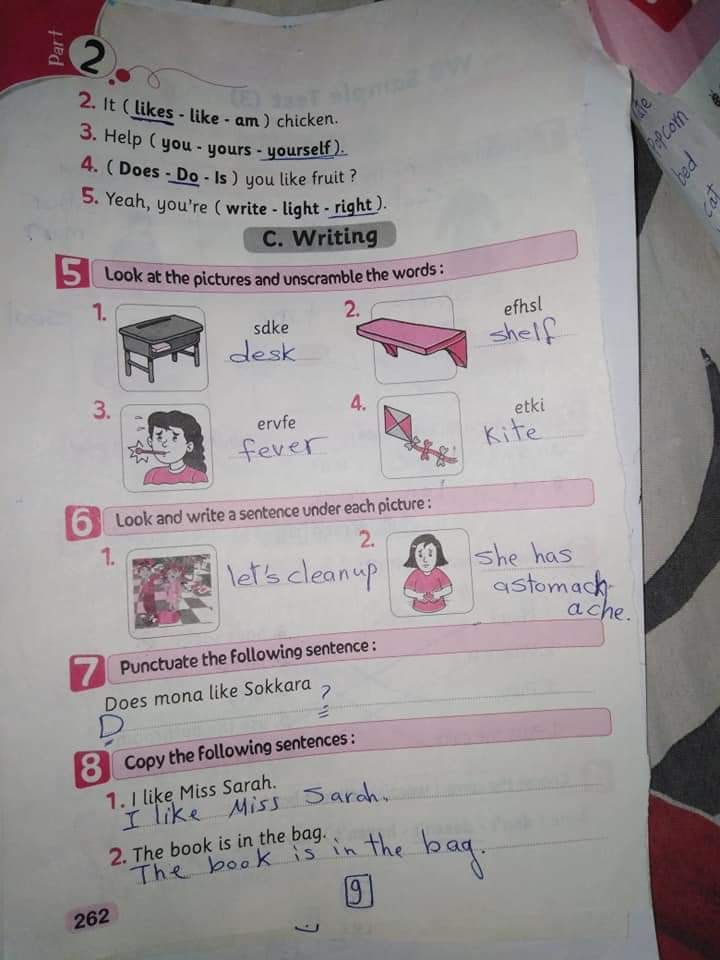 Part
2
2. It ( likes - like - am ) chicken.
3. Help ( you - yours - yourself ).
4. ( Does - Do - Is ) you like fruit ?
5. Yeah, you're ( write - light - right ).
C. Writing
5 Look at the pictures and unscramble the words :
1. sdke
desk
2. efhsl
shelf
3. ervfe
fever
4. etki
kite
6 Look and write a sentence under each picture :
1. let's cleanup
2. she has
astomach
ache.
7 Punctuate the following sentence :
Does mona like Sokkara ?
D
8 Copy the following sentences :
1. I like Miss Sarah.
I like Miss Sarah.
2. The book is in the bag.
The book is in the bag.
9
262
Popcorn
bed
cat